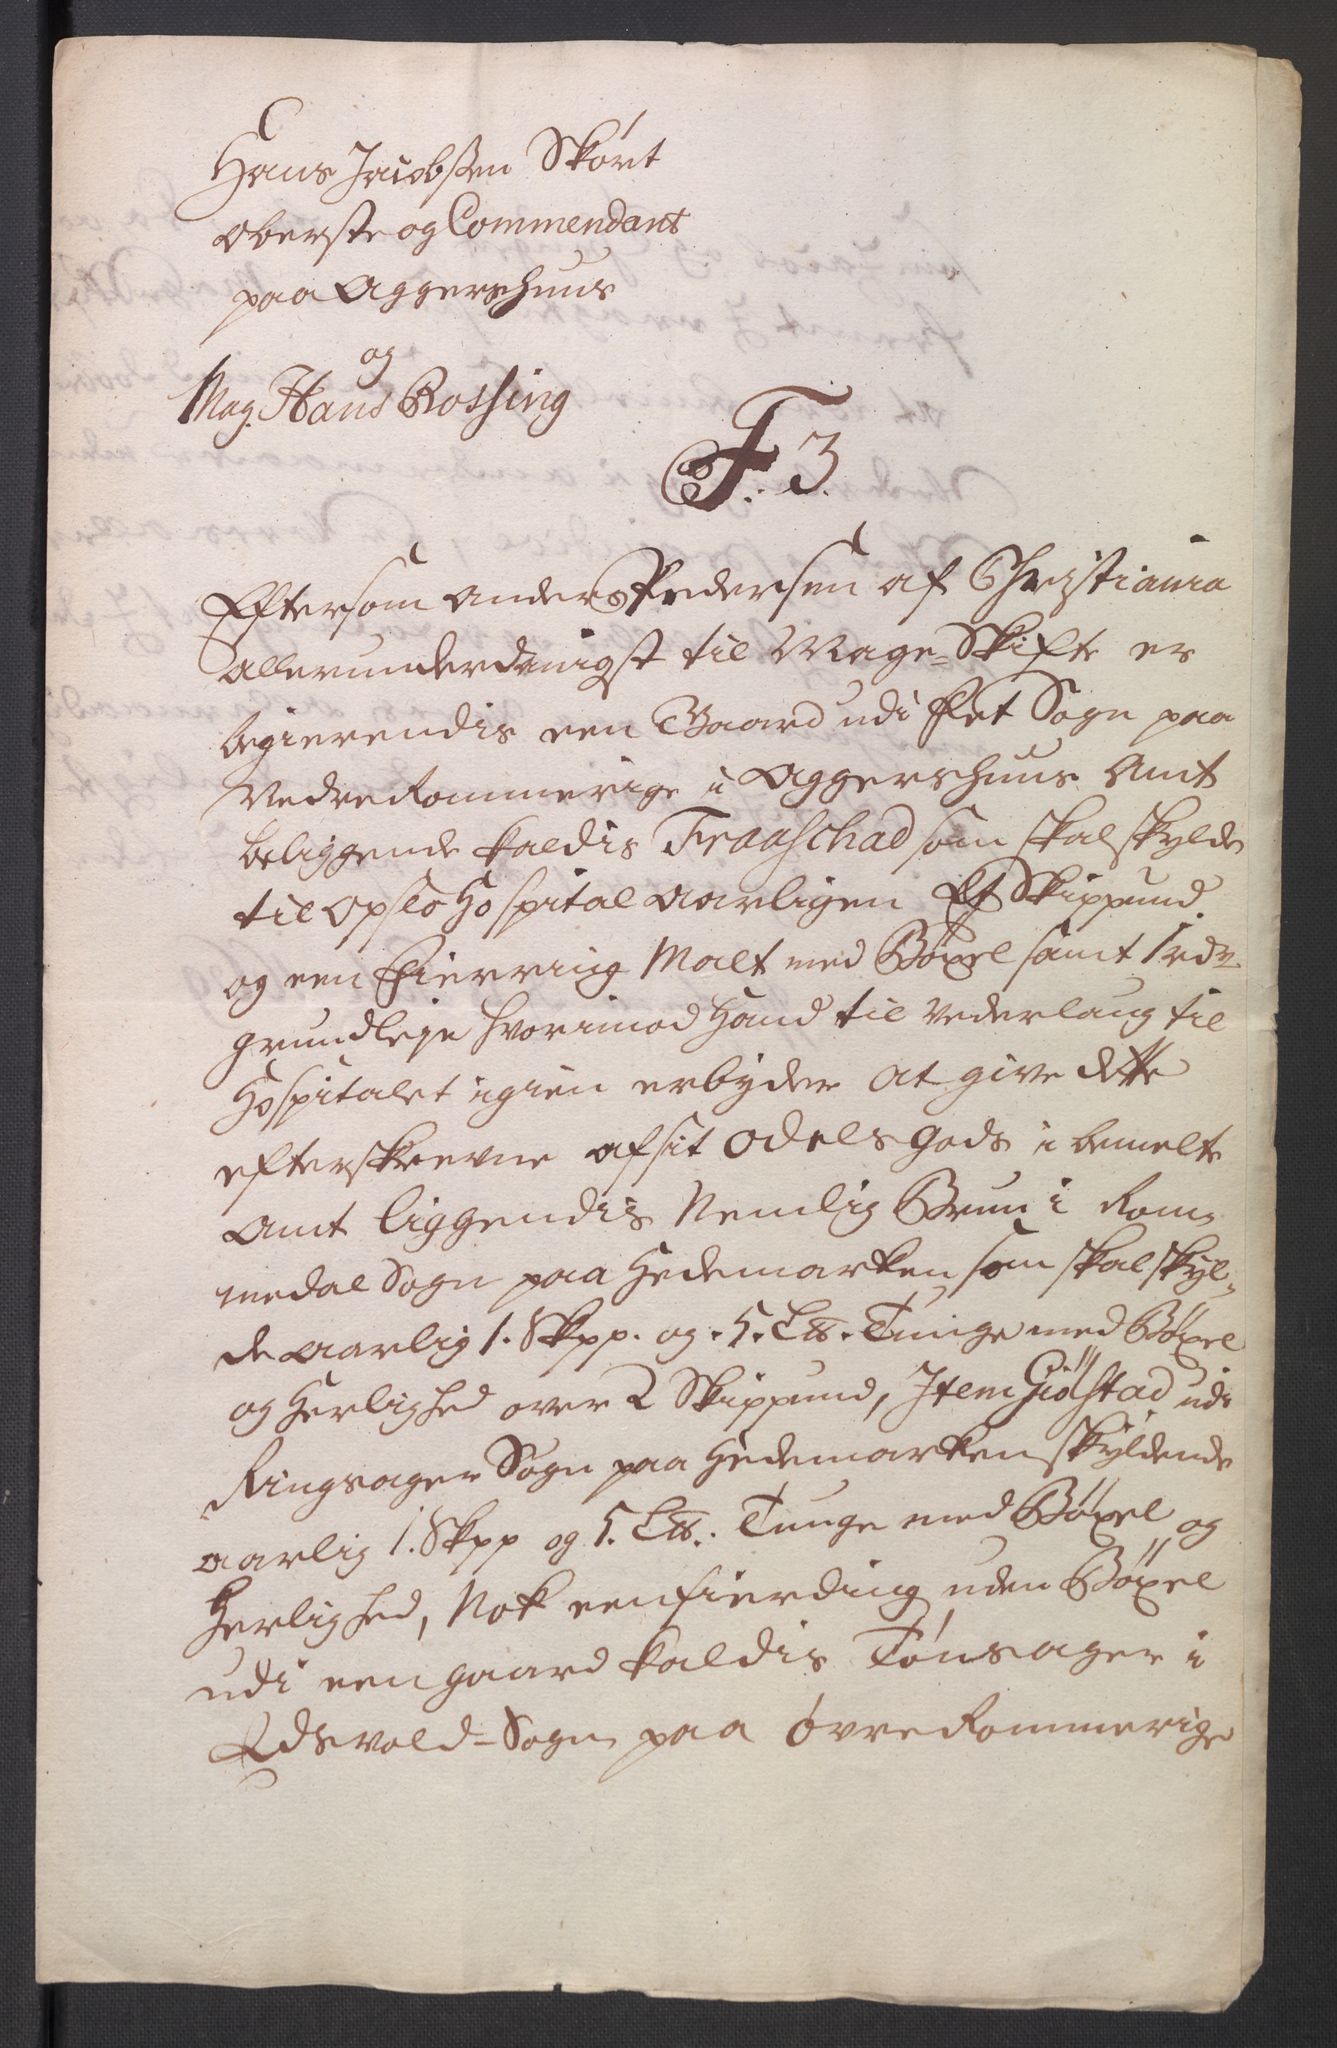 Hans Jacobsen Skört
Oberste og Commendant
paa Aggershuus
og
Mag. Hans Rossing
F: 3.
Eftersom Anders Pedersen af Christiania
Allerunderdanigst til Mage-Skifte er
begierendis een Gaard udi Fet Sogn paa
Nedre Rommerige i Aggershuus Amt
beliggende kaldis Fraaschad som skal skylde
til Opslo Hospital Aarligen Et Skippund
og een Fierring Malt med Böxel samt
grundleje hvorimod Hand til vederlaug til
Hospitalet igien erbyder at give dette
efterskrevne af sit Odels gods i bemelte
Amt liggendis Nemlig Bruun i Rom-
medal Sogn paa Hedemarken som skal skyl-
de aarlig 1. Skpp. og 5. L℔. Tunge med Böxel
og Herlighed over 2 Skippund, Item Giölstad udi
Ringsager Sogn paa Hedemarken skyldende
aarlig 1. Skpp og 5. L℔. Tunge med Böxel og
Herlighed, Nok een fierding uden Böxel
udi een gaard kaldis Tönsager i
Edsvold-Sogn paa Övre Rommerige